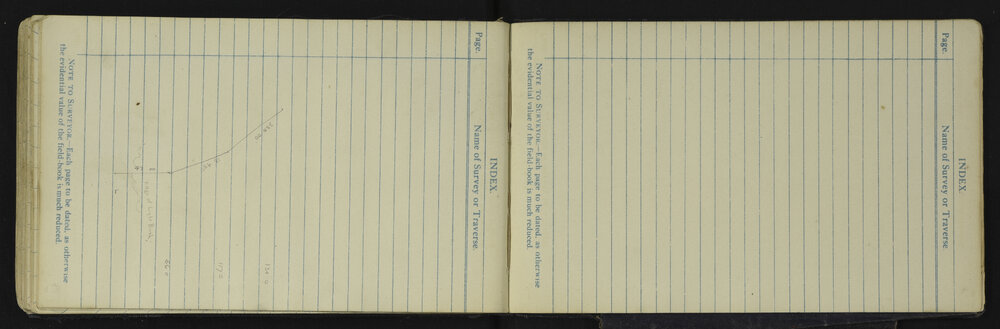 INDEX.
Page.
Name of Survey or Traverse.
NOTE TO SURVEYOR.—Each page to be dated, as otherwise
the evidential value of the field-book is much reduced.
INDEX.
Page.
Name of Survey or Traverse
NOTE TO SURVEYOR.—Each page to be dated, as otherwise
the evidential value of the field-book is much reduced.